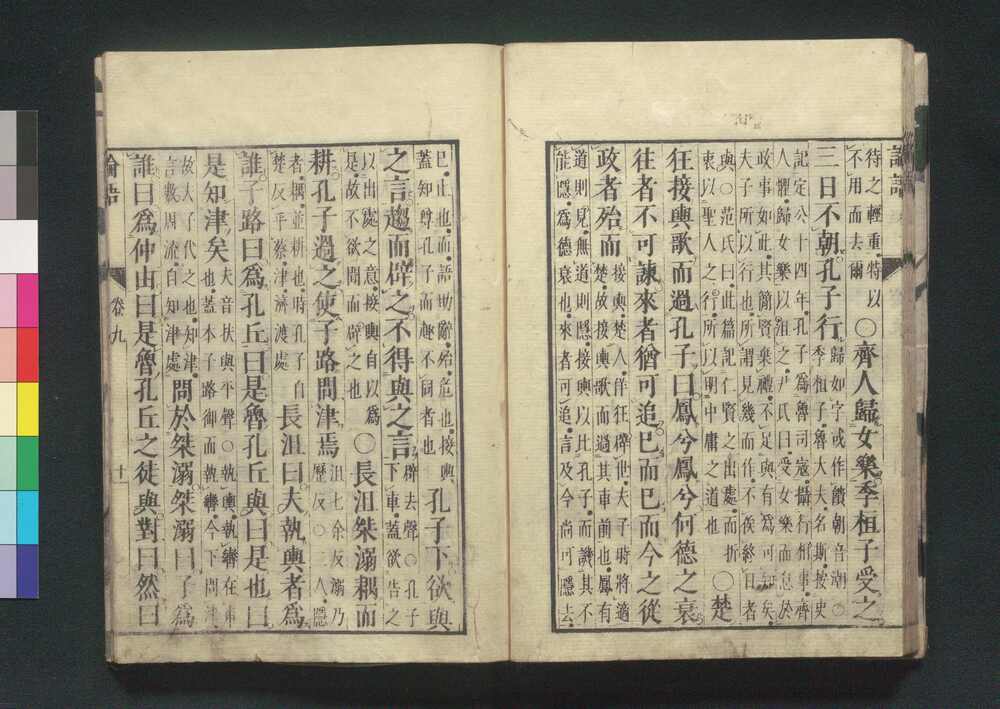 論語
待之輕重特以
不用而去爾
〇齊人歸女樂季桓子受之
三日不朝孔子行
歸如字或作饋朝音潮〇
季桓子魯大夫名斯按史
記定公十四年孔子爲魯司寇攝行相事齊
人懼歸女樂以沮之尹氏曰受女樂而怠於
政事如此其簡賢棄禮不足與有爲可知矣
夫子所以行也所謂見幾而作不俟終日者
與〇范氏曰此篇記仁賢之出處而折
衷以聖人之行所以明中庸之道也
〇楚
狂接輿歌而過孔子曰鳳兮鳳兮何德之衰
往者不可諫來者猶可追已而已而今之從
政者殆而
接輿楚人佯狂辟世夫子時將適
楚故接輿歌而過其車前也鳳有
道則見無道則隱接輿以比孔子而譏其不
能隱爲德衰也來者可追言及今尚可隱去
已止也而語助辭殆危也接輿
蓋知尊孔子而趨不同者也
孔子下欲與
之言趨而辟之不得與之言
辟去聲〇孔子
下車蓋欲告之
以出處之意接輿自以爲
是故不欲聞而辟之也
〇長沮桀溺耦而
耕孔子過之使子路問津焉
沮七余反溺乃
歷反〇二人隱
者耦並耕也時孔子自
楚反乎蔡津濟渡處
長沮曰夫執輿者爲
誰子路曰爲孔丘曰是魯孔丘與曰是也曰
是知津矣
夫音扶與平聲〇執輿執轡在車
也蓋本子路御而執轡今下問津
故夫子代之也知津
言數周流自知津處
問於桀溺桀溺曰子爲
誰曰爲仲由曰是魯孔丘之徒與對曰然曰
論語
卷九
十一